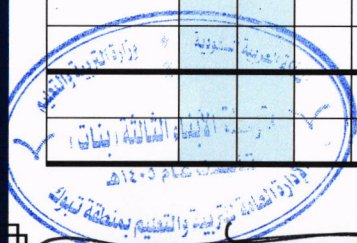 المملكة العربية السعودية
وزارة التربية والتعليم
الأبناء الثالثة (بنات)
عام ١٤٠٥هـ
الإدارة العامة للتربية والتعليم بمنطقة تبوك